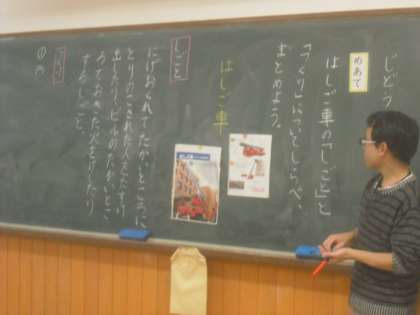 じどう
めあて
はしご車の「しごと」と
「つくり」についてしらべ、
まとめよう。
はしご車
しごと
にげおくれて、たかいところに
とりのこされた人をたすけ
出したり、ビルのたかいとこ
ろでおきた火をけしたり
するしごと。
つくり
①